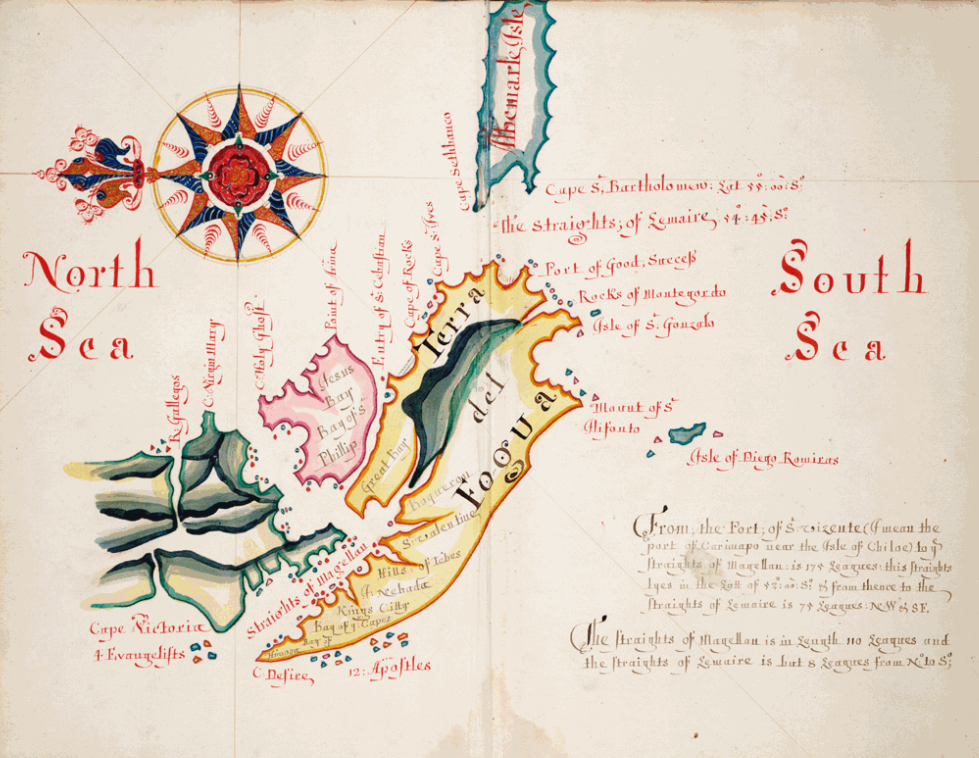 Albemarle Isle
Cape Sethbanco
Cape St. Bartholomew: Lat 55:00: So
The Straights; of Lemaire 54°:45; So
North
Sea
South
Sea
Port of Good, Success
Rocks of Montegordo
Isle of St. Gonzalo
Cape St. Ives
Cape of Rocks
Entry of St. Cebastian
Point of Arina
C: Holy Ghost
C: Virgin Mary
R. Gallegos
Terra
del
Fogua
Jesus
Bay
Bay of S
Phillip
Great Bay
Baqueron
S: Valentine
Mount of St
Alifonto
Isle of Diego Romiras
Hills, of Ishes
J: Nehada
Kings Citty
Bay of ye: Capes
Bay of
Straights of Magellan
Cape Victoria
4 Evangelifts
C Desire
12: Apostles
From, the Port; of St. Vizente (I mean the
port of Carimapo near the Isle of Chiloe) to ye
straights of Magellan: is 175 Leagues: this straights
lyes in the Latt of 52:00: So & from thence to the
Straights of Lemaire is 75 Leagues: N:W & S E.
The straights of Magellan is in Length 110 Leagues and
the straights of Lemaire is but 8 Leagues from No to So